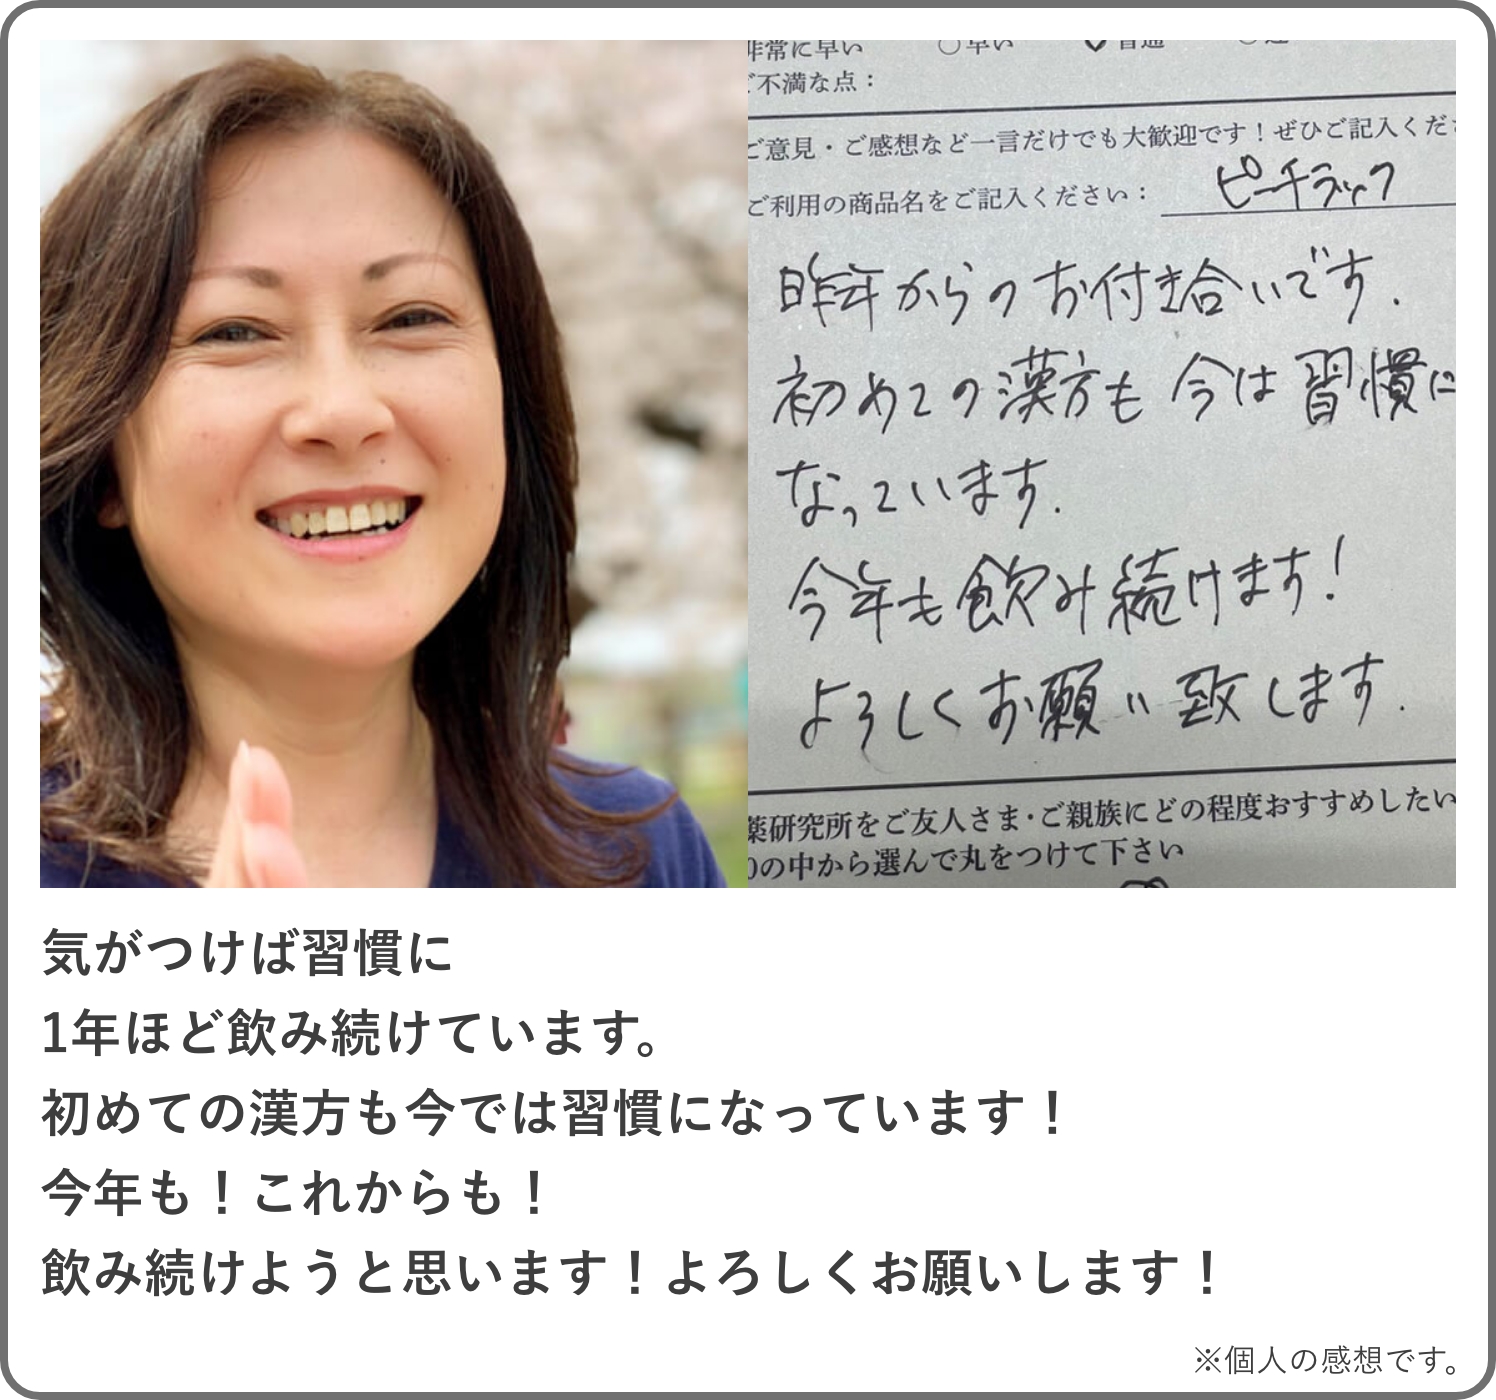 非常に早い ○早い 普通
ご不満な点：
ご意見・ご感想など一言だけでも大歓迎です！ぜひご記入くださ
ご利用の商品名をご記入ください： ピーチラック
昨年からのお付き合いです.
初めての漢方も今は習慣に
なっています.
今年も飲み続けます！
よろしくお願い致します.
薬研究所をご友人さま・ご親族にどの程度おすすめしたい
0の中から選んで丸をつけて下さい
気がつけば習慣に
1年ほど飲み続けています。
初めての漢方も今では習慣になっています！
今年も！これからも！
飲み続けようと思います！よろしくお願いします！
※個人の感想です。